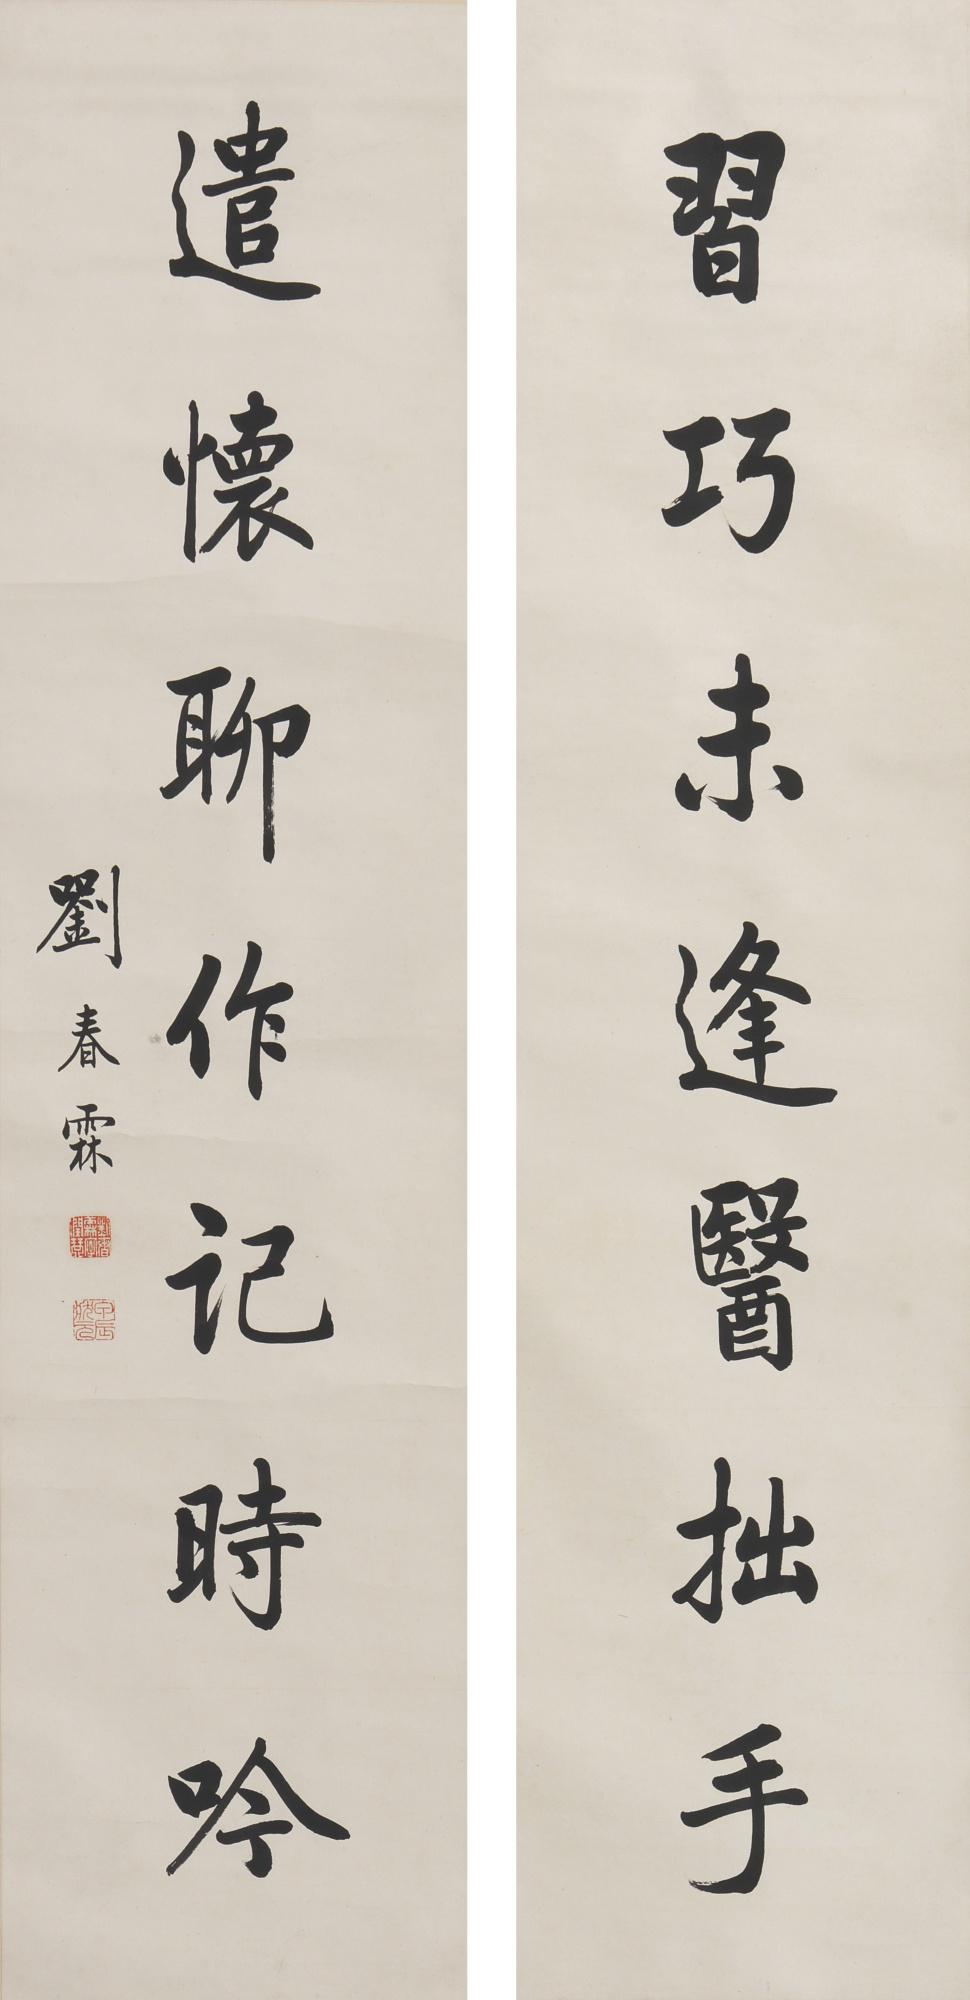 習巧未逢醫拙手
遣懷聊作記時吟
劉春霖